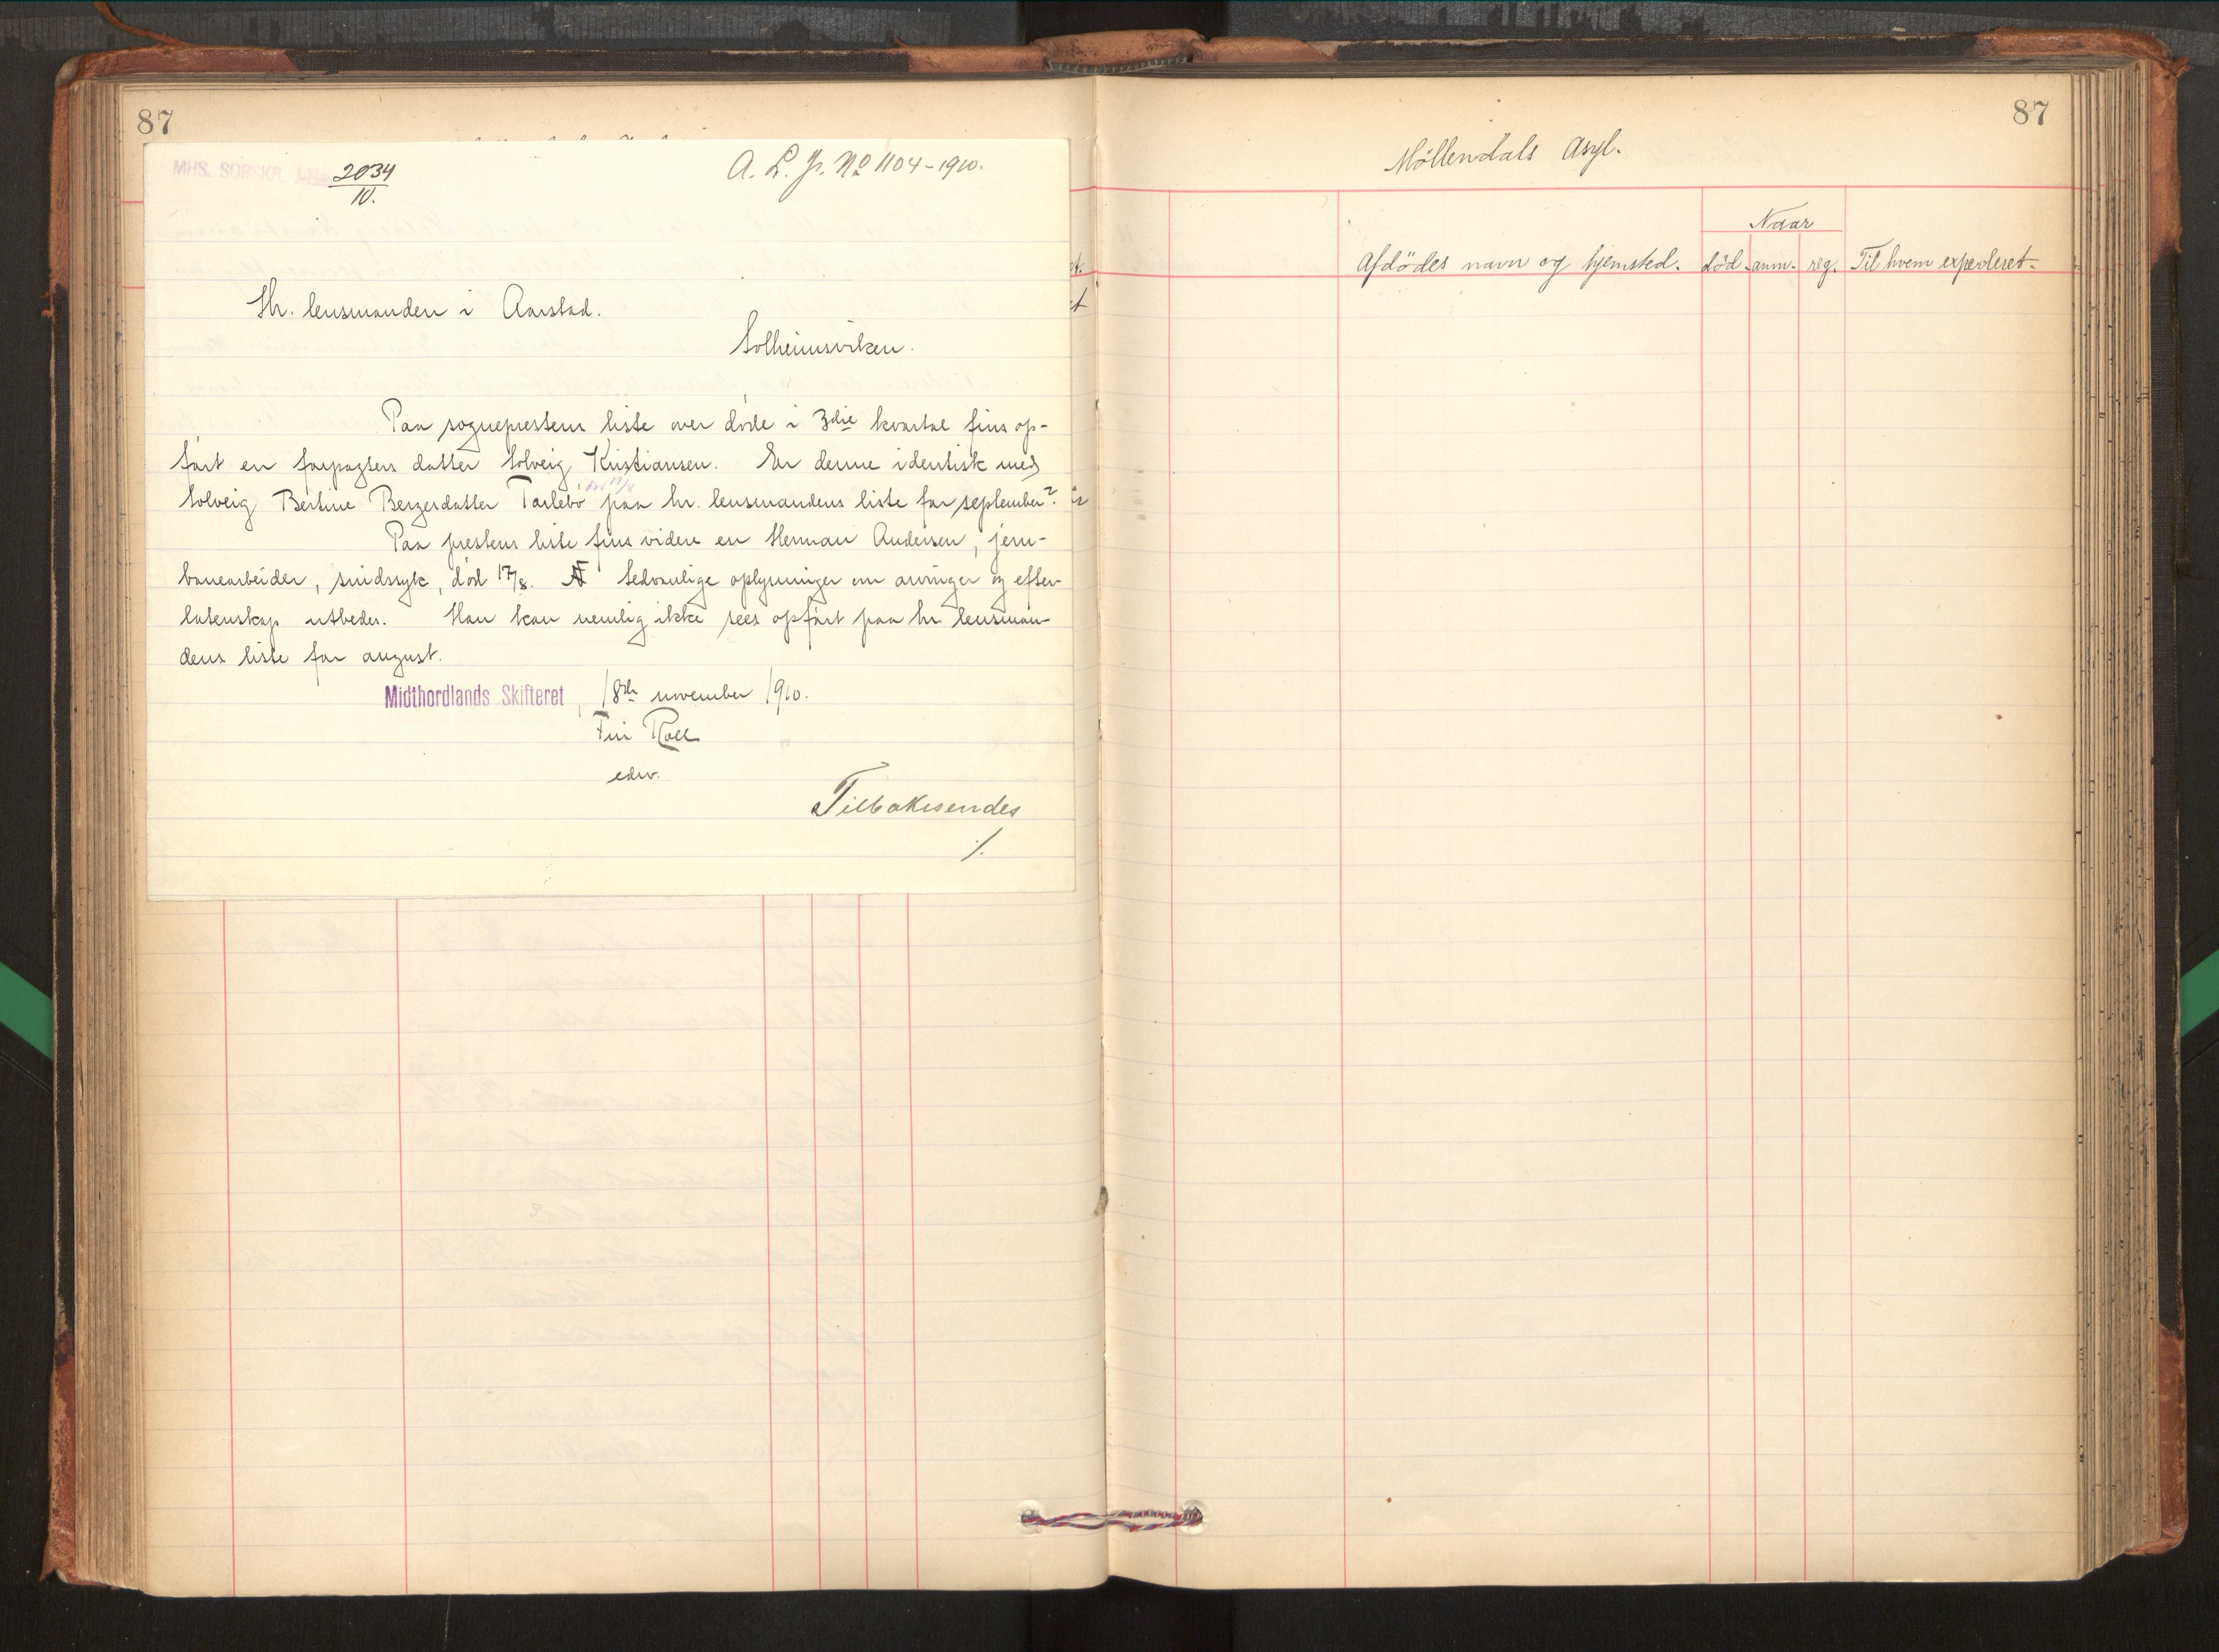 87
MHS. SORSKR.
2034
10.
A. L. Jr. No 1104-1910.
Hr. lensmanden i Aarstad.
Solheimsviken.
Paa sogneprestens liste over døde i 3die kvartal fins op-
ført en forpagters datter Solveig Kristiansen. Er denne identisk med
Solveig Bertine Bergersdatter Tarlebö paa hr. lensmandens liste for september?
Paa prestens liste fins videre en Herman Andersen, jern-
banearbeider, sindssyk, död 17/8. Sedvanlige oplysninger om arvinger og efter-
latenskap utbedes. Han kan nemlig ikke sees opført paa hr. lensman-
dens liste for august.
Midthordlands Skifteret, 18de november 1910.
Fin Roll
edsv.
Tilbakesendes
87
Möllendals Asyl.
Naar
Afdödes navn og hjemsted. död- anm- reg. Til hvem expederet-